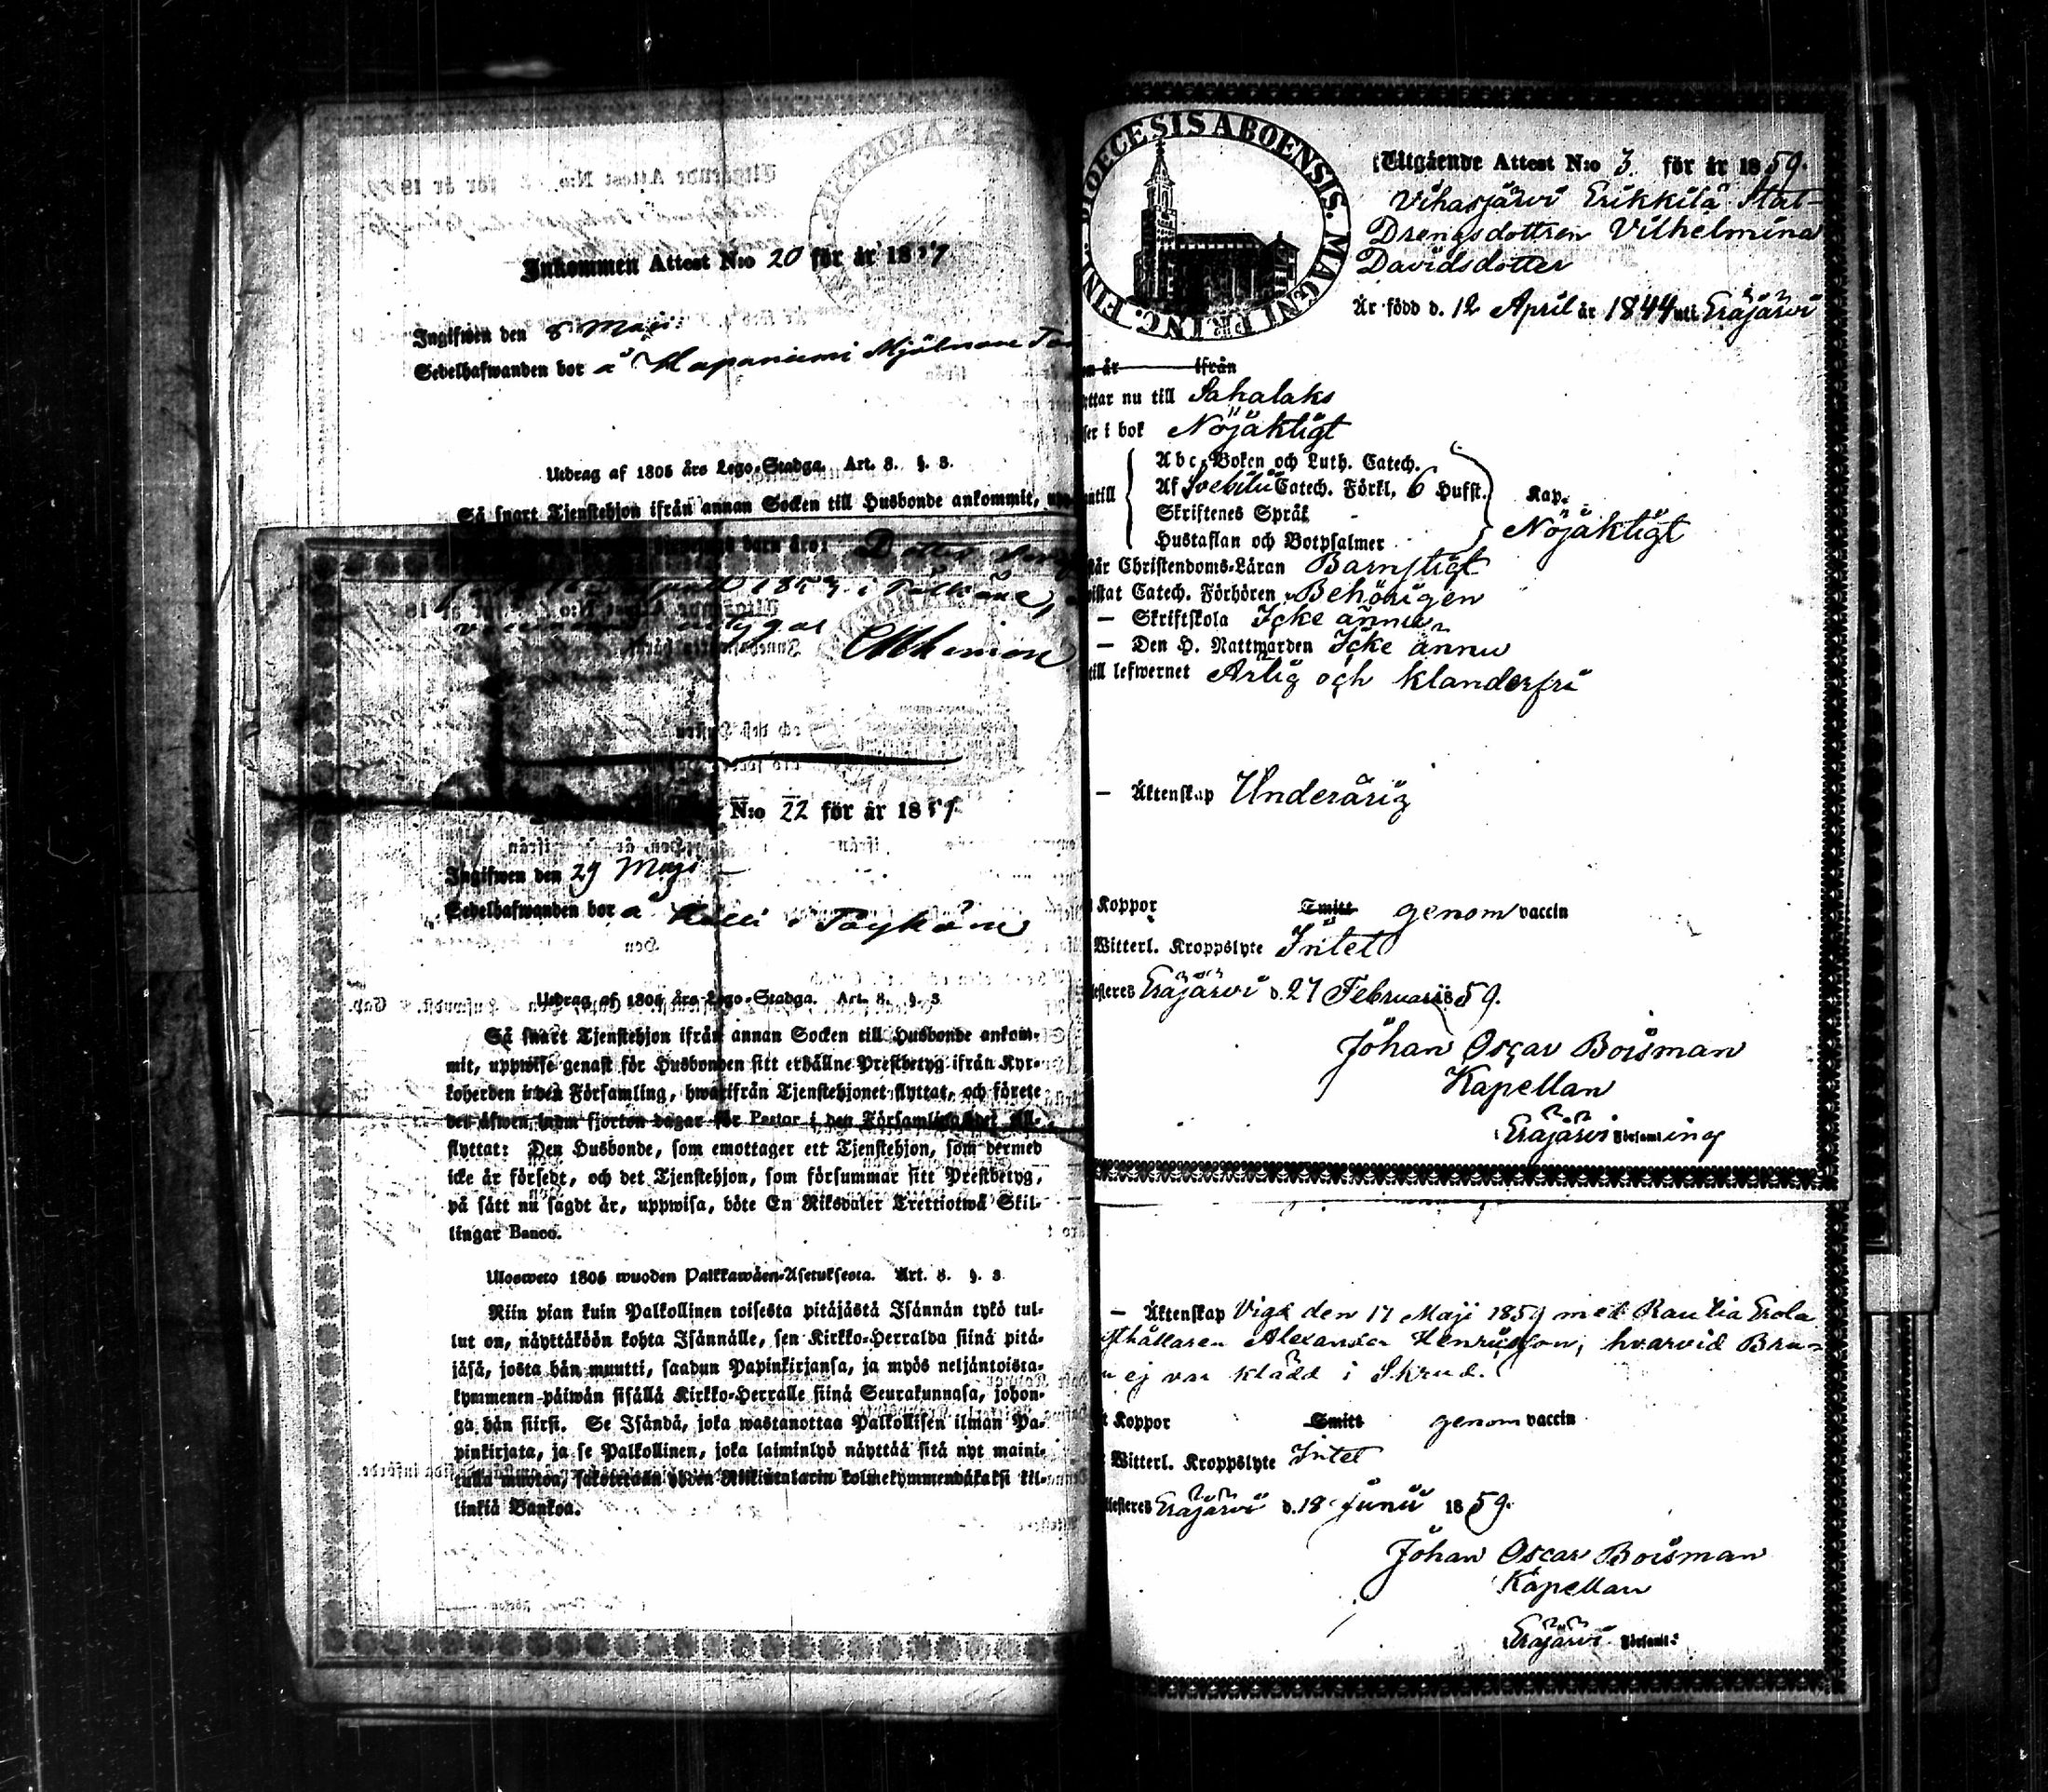 Inkommen Attest N:o 20 för år 18
Ingifwen den 8 Maji
Sedelhafwanden bor å Hapaniemi Mjölnare
Utdrag af 1805 års Lego-Stadga. Art. 8. §. 8.
Så snart Tjenstehjon ifrån annan Socken till Husbonde ankommit,
1853 i Pälkäne,
N:o 22 för år 18
Ingifwen den 29 Maji
Sedelhafwanden bor å
Utdrag af 1805 års Lego-Stadga. Art. 8. §. 8
Så snart Tjenstehjon ifrån annan Socken till Husbonde ankom-
mit, uppwise genast för Husbonden sitt erhållne Prestbetyg ifrån Kyr-
koherden i den Församling, hwarifrån Tjenstehjonet flyttat, och förete
det äfwen inom fjorton dagar för Pastor i den Församling det till-
flyttat: Den Husbonde, som emottager ett Tjenstehjon, som dermed
icke är försedt, och det Tjenstehjon, som försummar sitt Prestbetyg,
på sätt nu sagdt är, uppwisa, böte En Riksdaler Trettiotwå Skil-
lingar Banco.
Ulosweto 1805 wuoden Palkkawäen-Asetuksesta. Art. 8. §. 8
Niin pian kuin Palkollinen toisesta pitäjästä Isännän tykö tul-
lut on, näyttäköön kohta Isännälle, sen Kirkko-Herralda siinä pitä-
jäsä, josta hän muutti, saadun Papinkirjansa, ja myös neljäntoista-
kymmenen päiwän sisällä Kirkko-Herralle siinä Seurakunnasa, johon-
ga hän siirsi. Se Isändä, joka wastanottaa Palkollisen ilman Pa-
pinkirjata, ja se Palkollinen, joka laiminlyö näyttää sitä nyt maini-
tulla muoton, sakoitetaan yhden Riikintalarin kolmekymmendäkaksi kil-
linkiä Bankoa.
DIOECESIS ABOENSIS. MAGNI PRINC. FINL.
Utgående Attest N:o 3 för år 1859.
Vihasjärvi Erikkilä Stat-
Drengsdottren Vilhelmina
Davidsdotter
Är född d. 12 April år 1844 uti Eräjärvi
år ifrån
ttar nu till Sahalaks
ser i bok Nöjaktigt
Abc-Boken och Luth. Catech.
Af Svebilii Catech. Förkl. 6 Hufst. Kap.
Skriftenes Språk
Hustaflan och Botpsalmer Nöjaktigt
Christendoms-Läran Barnsligt
Catech. Förhören Behörigen
— Skriftskola Icke ännu
— Den H. Nattwarden Icke ännu
till lefwernet Ärlig och klanderfri
— Äktenskap Underårig
Koppor Smitt genom vaccin
Witterl. Kroppslyte Intet
Eräjärvi d. 27 Februari 1859.
Johan Oscar Boisman
Kapellan
Eräjärvi Församl ing
— Äktenskap Vigd den 17 Maji 1859 med Rautia Erola
thållaren Alexander Henriksson, hvarvid Bru-
n ej var klädd i Skrud.
Koppor Smitt genom vaccin
Witterl. Kroppslyte Intet
Eräjärvi d. 18 Junii 1859.
Johan Oscar Boisman
Kapellan
Eräjärvi Församl: